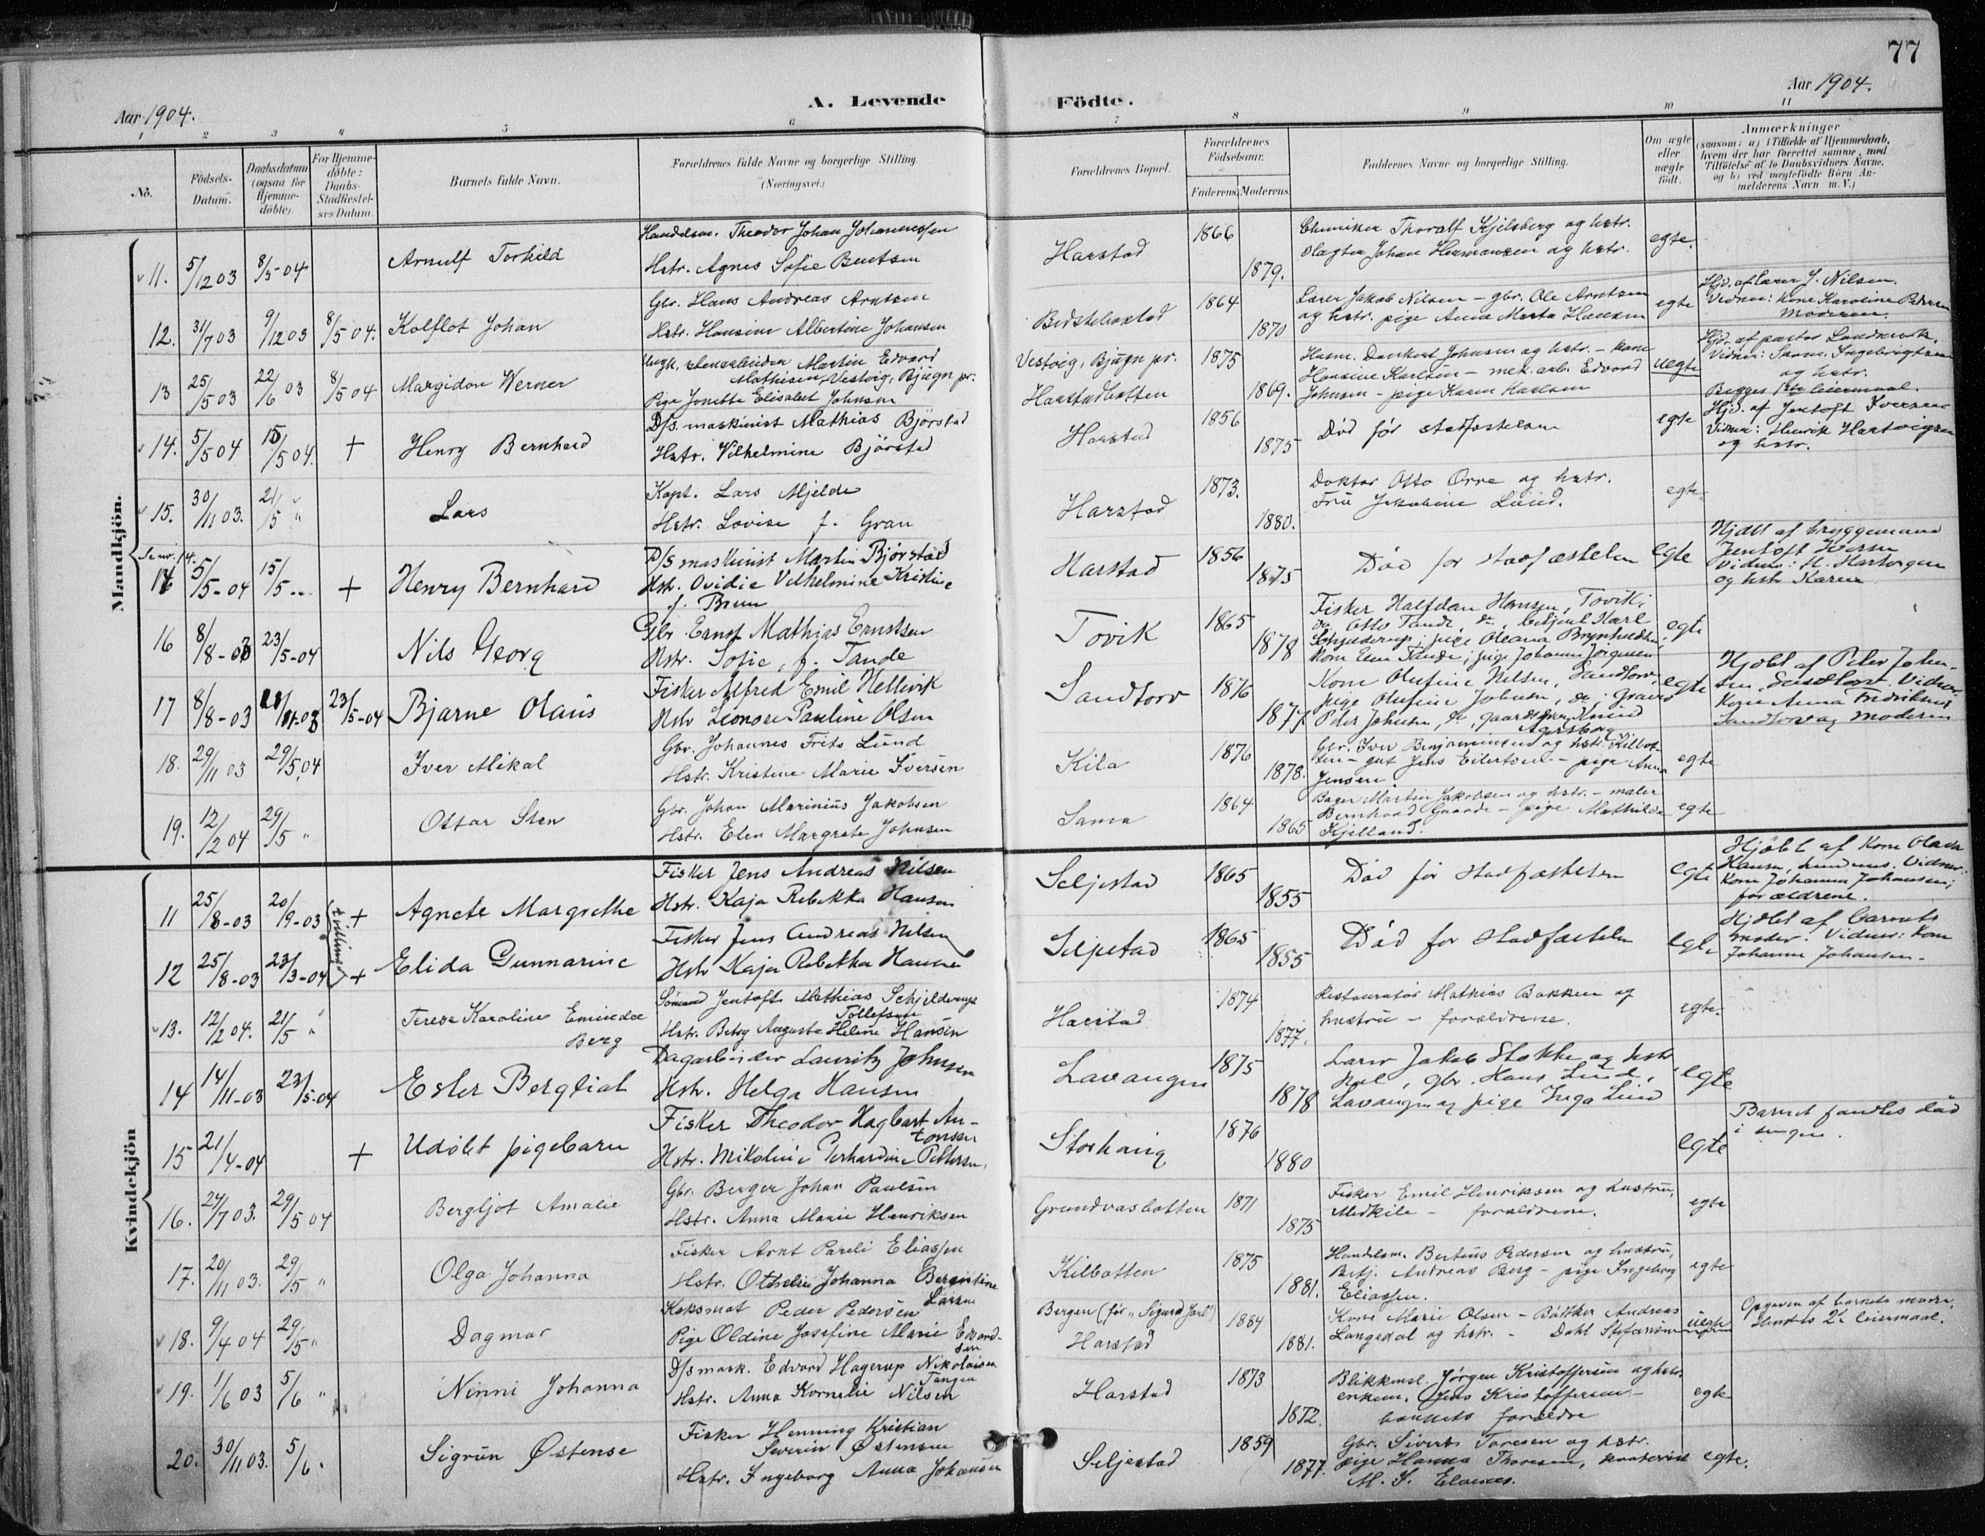 77
Aar 1904.
A. Levende
Födte.
Aar 1904.
1 2 3 4 5 6 7 8 9 10 11
No.
Födsels-Datum.
Daabsdatum (ogsaa for Hjemme-döbte).
For Hjemme-döbte: Daabs-Stadfæstel-ses Datum.
Barnets fulde Navn.
Forældrenes fulde Navne og borgerlige Stilling. (Næringsvei.)
Forældrenes Bopæl.
Forældrenes Födselsaar.
Faderens. Moderens.
Faddernes Navne og borgerlige Stilling.
Om ægte eller uægte födt.
Anmærkninger
(saasom: a) i Tilfælde af Hjemmedaab, hvem der har forrettet samme, med Tilföielse af to Daabsvidners Navne, og b) ved uægtefödte Börn An-melderens Navn m. V.)
Mandkjön.
11. 5/12 03 8/5-04 Arnulf Torhild
Handelsm. Theodor Johan Johannessen
Hstr. Agnes Sofie Bentsen
Harstad 1866 1879.
Chemiker Thoralf Kjelsberg og hstr.
Slagter Johan Hermansen og hstr.
egte.
12. 31/7 03 9/12 03 8/5 04. Kolflot Johan
Gbr. Hans Andreas Arntsen
Hstr. Hansine Albertine Johansen
1864 1870
Lærer Jakob Nilsen - gbr. Ole Arntsen
og hstr. pige Anna Marta Hansen
egte
Hjd. af lærer J. Nilsen.
Vidner: Kone Karoline
Moderen.
13 25/5 03 22/6 03 8/5 04 Margidor Werner
Martin Edvard
Mathisen, Vestvig, Bjugn pr.
Pige Jonette Elisabet Johnsen
Vestvig, Bjugn pr. 1875
Harstadbotten 1869.
Husm. Dankert Johnsen og hstr. - kone
Hansine Karlsen - mek. arb. Edvard
Johnsen - pige Karen Karlsen
uegte
Hjd. af pastor Landmark.
og hstr.
Begges 1ste leiermaal.
14. 5/5 04 15/5 04. + Henry Bernhard
D/s. maskinist Mathias Bjørstad
Hstr. Vilhelmine Bjørstad
Harstad 1856 1875
Død før stadfæstelsen
egte
Hjd. af Jentoft Iversen
Vidner: Henrik Hartvigsen
og hstr.
15. 30/11 03. 21/5 " Lars
Kapt. Lars Mjelde
Hstr. Lovise f. Gran
Harstad 1873. 1880.
Doktor Otto Orre og hstr.
Fru Jakobine Lund.
egte.
Se nr. 14.
16 5/5-04 15/5 " + Henry Bernhard
D/S maskinist Martin Bjørstad
Hstr. Ovidie Vilhelmine Kristine
f. Bruun
Harstad 1856 1875
Død for stadfæstelsen
egte
Hjdbt af bryggemand
Jentoft Iversen
Vidner: H. Hartvigsen
og hstr Karen
16 8/8-03 23/5-04 Nils Georg
Gbr. Ernst Mathias Ernstsen
Hstr. Sofie, f. Tande
Tovik 1865 1878
Fisker Halfdan Hansen, Tovik,
do Otto Tande, do, Karl
Schjelderup; pige Oleana Brynhildsen,
Kone Elen Tande; pige Johanna Jørgensen
egte
17 8/8-03 11/11-03 23/5-04 Bjarne Olaus
Fisker Alfred Emil Hellevik
Hstr Leonore Pauline Olsen
Sandtorv 1876 1877
Kone Olufine Nilsen, Sandtorv,
pige Olufine Johnsen, do,
Peter Johnsen, do, gaardbruger
egte
Hjdbt af Peter John-
sen, Sandtorv. Vidner:
Kone Anna Fredriksen
Sandtorv og moderen
18. 29/11 03 29/5 04 Iver Mikal
Gbr. Johannes Frits Lund
Hstr. Kristine Marie Iversen
Kila 1876 1878.
Gbr. Iver Benjaminsen og hstr. Kilbot-
ten - gut Jens Eilertsen - pige Anna
Jensen
egte
19. 12/2 04 29/5 " Ottar Sten
Gbr. Johan Marinius Jakobsen
Hstr. Elen Margrete Johnsen
Sama 1864 1865
Bager Martin Jakobsen og hstr. - maler
Bernhard Gaarde - pige Mathilda
Kjelland.
egte
Kvindekjön
11 25/8-03 20/9-03 + Agnete Margrethe
tvillinger
Fisker Jens Andreas Nilsen
Hstr. Kaja Rebekka Hansen
Seljestad 1865 1855
Død før stadfæstelsen
egte
Hjdbt af Kone Olava
Hansen, Vidner:
Kone Johanna Johansen;
forældrene.
12 25/8-03 23/3-04 + Elida Gunnarine
Fisker Jens Andreas Nilsen
Hstr Kaja Rebekka Hansen
Seljestad 1865 1855
Død for stadfæstelsen
egte
Hjdbt af barnets
moder. Vidner: Kone
Johanna Johansen.
13. 12/2 04. 21/5 " Terese Karoline
Berg
Sømand Jentoft Mathias Schjelderup
Tollefsen
Hstr. Betsy Augusta Helene Hansen
Harstad 1874 1877.
Restauratør Mathias Bakken og
hustru - forældrene
egte.
14 14/11-03 23/5-04 Ester Bergliot
Dagarbeider Lauritz Johnsen
Hstr. Helga Hansen
Lavangen 1875 1878
Lærer Jakob Stokke og hstr
gbr. Hans Lund,
Lavangen og pige Inga Lund
egte
15 21/4-04 + Udøbt pigebarn
Fisker Theodor Hagbart An-
tonsen
Hstr. Mikoline Gerhardine Pettersen.
Storhaug 1876 1880
egte
Barnet fandtes død
i sengen.
16. 27/7 03. 29/5 04 Bergljot Amalie
Gbr. Berger Johan Paulsen
Hstr. Anna Marie Henriksen
Grundvasbotten 1871 1875
Fisker Emil Henriksen og hustru,
Medkile - forældrene.
egte
17. 20/11 03. 29/5 " Olga Johanna
Fisker Arnt Pareli Eliassen
Hstr. Othelie Johanna Berentine
Larsen
Kilbotten 1875 1881.
Handelsm. Berteus Pedersen og hustru,
Betj. Andreas Berg - pige Ingeborg
Eliassen.
egte
18. 9/4 04 29/5 " Dagmar
Koksmat Peder Pedersen
Pige Oldine Josefine Marie Edvard-
sen
Bergen (før "Sigurd Jarl")
Harstad 1884 1881.
Kone Marie Olsen - Bødker Andreas
Langedal og hstr. - Dahl Stefansen
uegte
Opgaven af barnets moder.
Hendes 2det leiermaal.
19. 1/6 03 5/6 " Ninni Johanna
D/s mask. Edvard Hagerup Nikolaisen
Tangen
Hstr. Anna Kornelie Nilsen
Harstad 1873 1872.
Blikkensl. Jørgen Kristoffersen og hstr.
enkem. Jens Kristoffersen -
barnets forældre
egte
20. 30/11 03. 5/6 " Sigrun Østense
Fisker Henning Kristian
Severin Østensen
Hstr. Ingeborg Anna Johansen
Seljestad 1859 1877.
Gbr. Sivert Toresen og hstr.
pige Hanna Thoresen,
M. S. Elvenes.
egte.